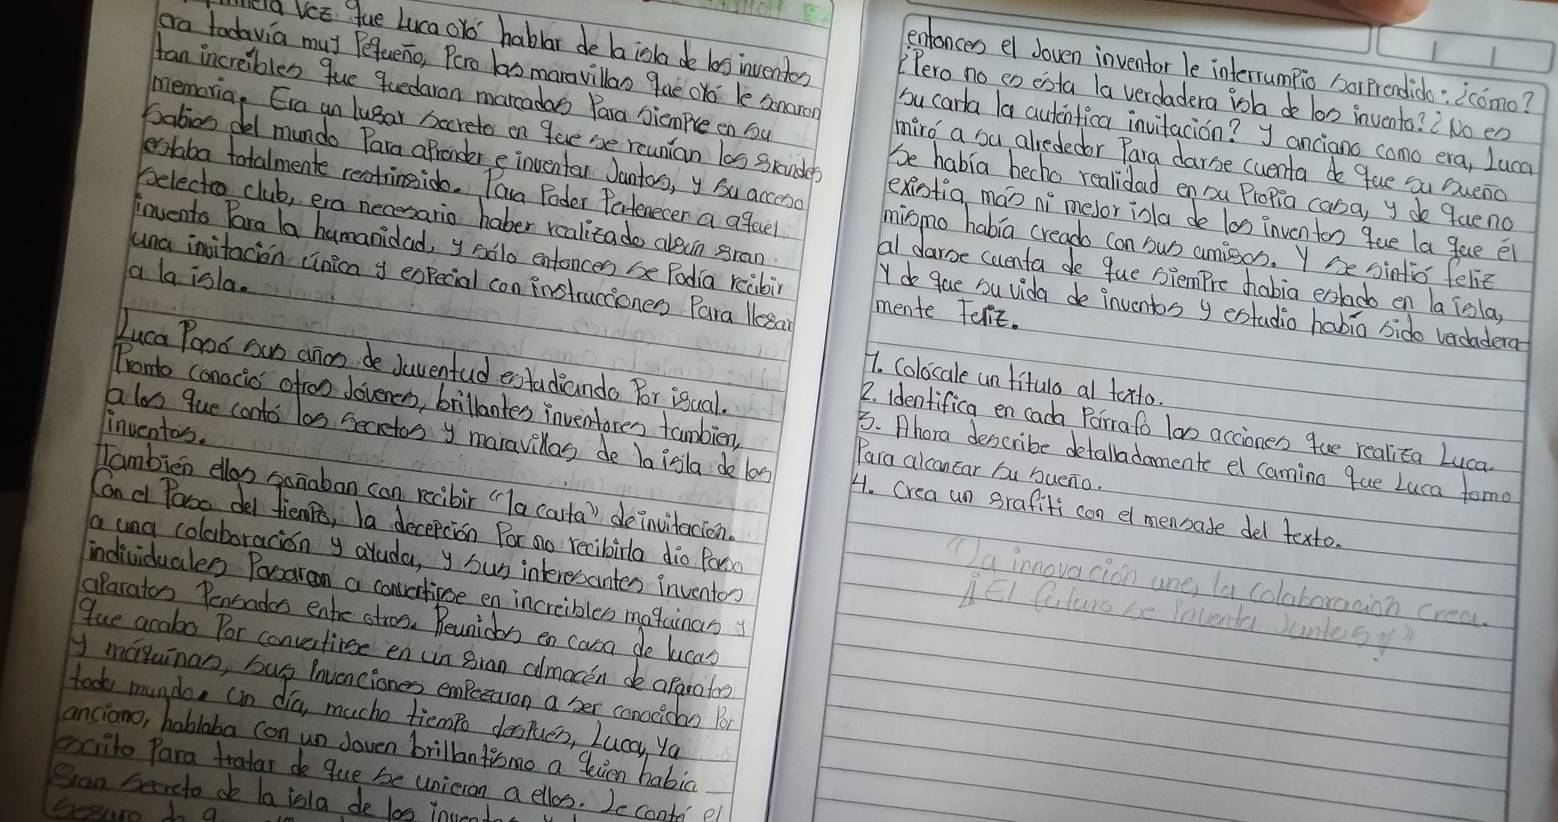 vez que Luca oyó hablar de la isla de los inventos
era todavía muy Pequeño, Pero las maravillas que oyó le
tan increíbles que quedaron marcadas Para siempre en su
memoria. Era un lugar secreto en que se reunían los grandes
sabios del mundo Para aprender e inventar Juntos, y su acceso
estaba totalmente restringido. Para Poder Pertenecer a aquel
selecto club, era necesario haber realizado algún gran
invento Para la humanidad, y sólo entonces se Podía recibir
una invitación única y especial con instrucciones Para llegar
a la isla.
Luca Pasó sus años de Juventud estudiando Por igual.
Pronto conoció otros Jóvenes, brillantes inventores también,
a los que contó los secretos y maravillas de la isla de los
inventos.
También ellos soñaban con recibir "la carta" de invitación.
Con el Paso del tiempo, la decepción Por no recibirla dio Paso
a una colaboración y ayuda, y sus interesantes inventos
individuales Pasaron a convertirse en increíbles máquinas y
aparatos Pensados entre otros. Reunidos en casa de lucas
que acabo Por convertirse en un gran almacén de aparatos
y máquinas, sus Invenciones empezaron a ser conocidas Por
todo mundo. Un día, mucho tiempo después, Luca, ya
anciano, hablaba con un Joven brillantísmo a quien había
escrito Para tratar de que se unieran a ellos. Le contó el
gran secreto de la isla de los
entonces el Joven inventor le interrumpio sorprendido: ¿cómo?
¿Pero no es esta la verdadera isla de los invento? ¿No es
su carta la auténtica invitación? y anciano como era, Luca
miró a su alrededor Para darse cuenta de que su sueño
se había hecho realidad en su Propia casa, y de que no
existia más ni mejor isla de los inventos que la que él
mismo había creado con sus amigos. Y se sintió feliz
al darse cuenta de que siempre habia estado en la isla,
Y de que su vida de inventos y estudio había sido verdadera
mente Feliz.
1. Colócale un título al texto.
2. Identifica en cada Párrafo las acciones que realiza Luca.
3. Ahora describe detalladamente el camino que Luca tomo
Para alcanzar su sueño.
4. Crea un grafiti con el mensaje del texto.
"La innovación une, la colaboración crea.
¡El futuro se inventa Juntos!"